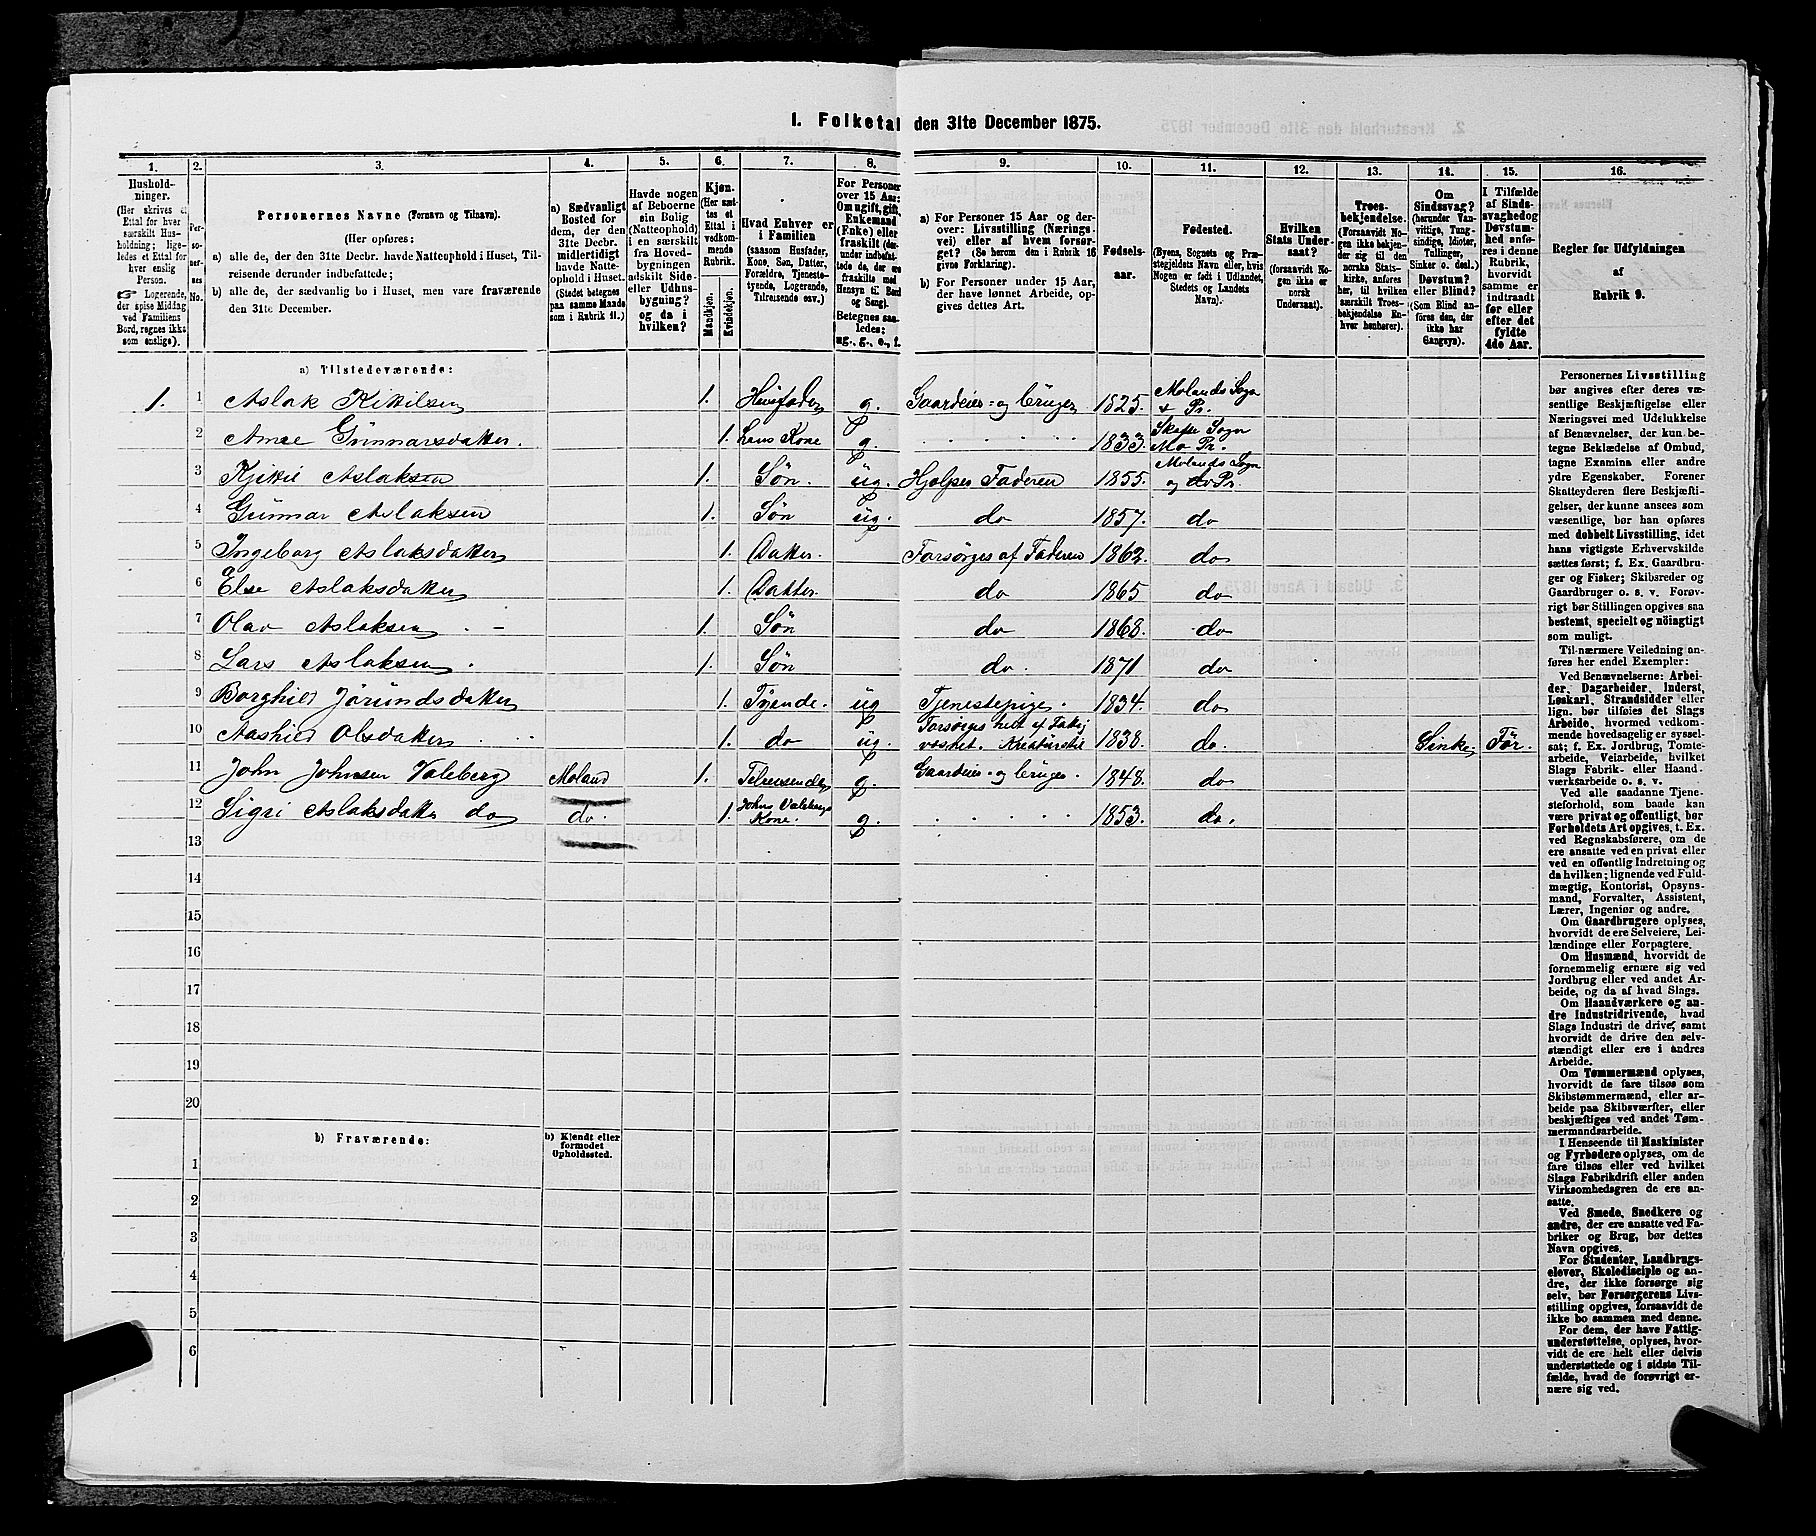 1. Folketal den 31te December 1875.
1. 2. 3. 4. 5. 6. 7. 8. 9. 10. 11. 12. 13. 14. 15. 16.
Hushold-
ninger.
(Her skrives et
Ettal for hver
særskilt Hus-
holdning; lige-
ledes et Ettal for
hver enslig
Person.
☞ Logerende,
der spise Middag
ved Familiens
Bord, regnes ikke
som enslige).
Per-
so-
ner-
nes
No.
Personernes Navne (Fornavn og Tilnavn).
(Her opføres:
a) alle de, der den 31te Decbr. havde Natteophold i Huset, Til-
reisende derunder indbefattede;
b) alle de, der sædvanlig bo i Huset, men vare fraværende
den 31te December.
a) Sædvanligt
Bosted for
dem, der den
31te Decbr.
midlertidigt
havde Natte-
ophold i Huset.
(Stedet betegnes
paa samme Maade
som i Rubrik 11.)
Havde nogen
af Beboerne
sin Bolig
(Natteophold)
i en særskilt
fra Hoved-
bygningen
adskilt Side-
eller Udhus-
bygning?
og da i
hvilken?
Kjøn.
(Her sæt-
tes et
Ettal i
vedkom-
mende
Rubrik.
Mandkjøn.
Kvindekjøn.
Hvad Enhver er
i Familien
(saasom Husfader,
Kone, Søn, Datter,
Forældre, Tjeneste-
tyende, Logerende,
Tilreisende osv.)
For Personer
over 15 Aar:
Om ugift, gift,
Enkemand
(Enke) eller
fraskilt (der-
under indbefat-
tede de, der ere
fraskilte med
Hensyn til Bord
og Seng).
Betegnes saa-
ledes:
ug., g., e., f.
a) For Personer 15 Aar og der-
over: Livsstilling (Nærings-
vei) eller af hvem forsør-
get? (Se herom den i Rubrik 16
givne Forklaring).
b) For Personer under 15 Aar,
der have lønnet Arbeide, op-
gives dettes Art.
Fødsels-
aar.
Fødested.
(Byens, Sognets og Præ-
stegjeldets Navn eller, hvis
Nogen er født i Udlandet,
Stedets og Landets
Navn).
Hvilken
Stats Under-
saat?
(forsaavidt No-
gen ikke er
norsk
Undersaat).
Troes-
bekjendelse.
(Forsaavidt No-
gen ikke bekjen-
der sig til den
norske Stats-
kirke, anføres
her, til hvilken
særskilt Troes-
bekjendelse En-
hver henhører).
Om
Sindssvag?
(herunder Van-
vittige, Tung-
sindige, Idioter,
Tullinger,
Sinker o. desl.)
Døvstum?
eller Blind?
(Som Blind an-
føres den, der
ikke har
Gangsyn).
I Tilfælde
af Sinds-
svaghed og
Døvstum-
hed anfø-
res i denne
Rubrik,
hvorvidt
samme er
indtraadt
før eller
efter det
fyldte
4de Aar.
Regler for Udfyldningen
af
Rubrik 9.
a) Tilstedeværende:
1. 1 Aslak Kittilsen 1. Husfader g. Gaardeier og bruger 1825. Molands Sogn + Pr.
2 Anne Günnarsdatter. 1. Hans Kone g. 1833. Skafse Sogn Mo Pr.
3 Kjittil Aslaksen 1. Søn. ug. Hjelper Faderen 1855. Molands Sogn og do Pr.
4 Günnar Aslaksen 1. Søn ug. do 1857. do
5 Ingeborg Aslaksdatter 1. Datter. Forsørges af Faderen 1862. do
6 Else Aslaksdatter 1. Datter. do 1865 do
7 Olav Aslaksen. - 1. Søn do 1868. do
8 Lars Aslaksen. 1. Søn do. 1871 do
9 Borghild Jørundsdatter 1. Tyende. ug Tjenestepige. 1834. do
10 Aashild Olsdatter. 1. do ug. Forsørges helt af Fattigvæsenet. Kreaturstel 1838. do. Sinke, Før.
11 John Johnsen Valeberg Moland 1. Tilreisende g. Gaardeier og bruger. 1848. do
12 Sigri Aslaksdatter do do. 1. Johns Valebergs Kone. g. 1853. do.
13
14
15
16
17
18
19
20
b) Fraværende:
b) Kjendt eller
formodet
Opholdssted.
1
2
3
4
5
6
Personernes Livsstilling
bør angives efter deres væ-
sentlige Beskjæftigelse eller
Næringsvei med Udelukkelse
af Benævnelser, der kun be-
tegne Beklædelse af Ombud,
tagne Examina eller andre
ydre Egenskaber. Forener
Skatteyderen flere Beskjæfti-
gelser, der kunne ansees som
væsentlige, bør han opføres
med dobbelt Livsstilling, idet
hans vigtigste Erhvervskilde
sættes først; f. Ex. Gaardbru-
ger og Fisker; Skibsreder og
Gaardbruger o. s. v. Forøv-
rigt bør Stillingen opgives saa
bestemt, specielt og nöiagtigt
som muligt.
Til nærmere Veiledning an-
føres her endel Exempler:
Ved Benævnelserne: Arbei-
der, Dagarbeider, Inderst,
Løskarl, Strandsidder eller
lign. bør tilføies det Slags
Arbeide, hvormed vedkom-
mende hovedsagelig er syssel-
sat; f. Ex. Jordbrug, Tomte-
arbeide, Veiarbeide, hvilket
Slags Fabrik- eller Haand-
værksarbeide o. s. v.
Ved alle saadanne Tjene-
steforhold, som baade kan
være privat og offentligt, bør
Forholdets Art opgives, t. Ex.
ved Regnskabsførere, om de
ere ansatte ved en privat eller
ved en offentlig Indretning og
da hvilken; lignende ved Fuld-
mægtig, Kontorist, Opsyns-
mand, Forvalter, Assistent,
Lærer, Ingeniør og andre.
Om Gaardbrugere oplyses,
hvorvidt de ere Selveiere, Lei-
lændinge eller Forpagtere.
Om Husmænd, hvorvidt de
fornemmelig ernære sig ved
Jordbrug eller ved andet Ar-
beide, og da af hvad Slags.
Om Haandværkere og an-
dre Industridrivende, hvad
Slags Industri de drive, samt
hvorvidt de drive den selv-
stændigt eller ere i andres
Arbeide.
Om Tømmermænd oplyses,
hvorvidt de fare tilsøs som
Skibstømmermænd, eller ar-
beide paa Skibsværfter, eller
beskjæftiges ved andet Tøm-
mermandsarbeide.
I Henseende til Maskinister
og Fyrbødere oplyses, om de
fare tilsøs eller ved hvilket
Slags Fabrikdrift eller anden
Virksomhedsgren de ere an-
satte.
Ved Smede, Snedkere og
andre, der ere ansatte ved Fa-
briker og Brug, bør dettes
Navn opgives.
For Studenter, Landbrugs-
elever, Skoledisciple og an-
dre, der ikke forsørge sig
selv, bør Forsørgerens Livs-
stilling opgives, forsaavidt de
ikke bo sammen med denne.
For dem, der have Fattig-
understøttelse, oplyses, hvor-
vidt de ere helt eller delvis
understøttede og i sidste Til-
fælde, hvad de forøvrigt er-
nære sig ved.